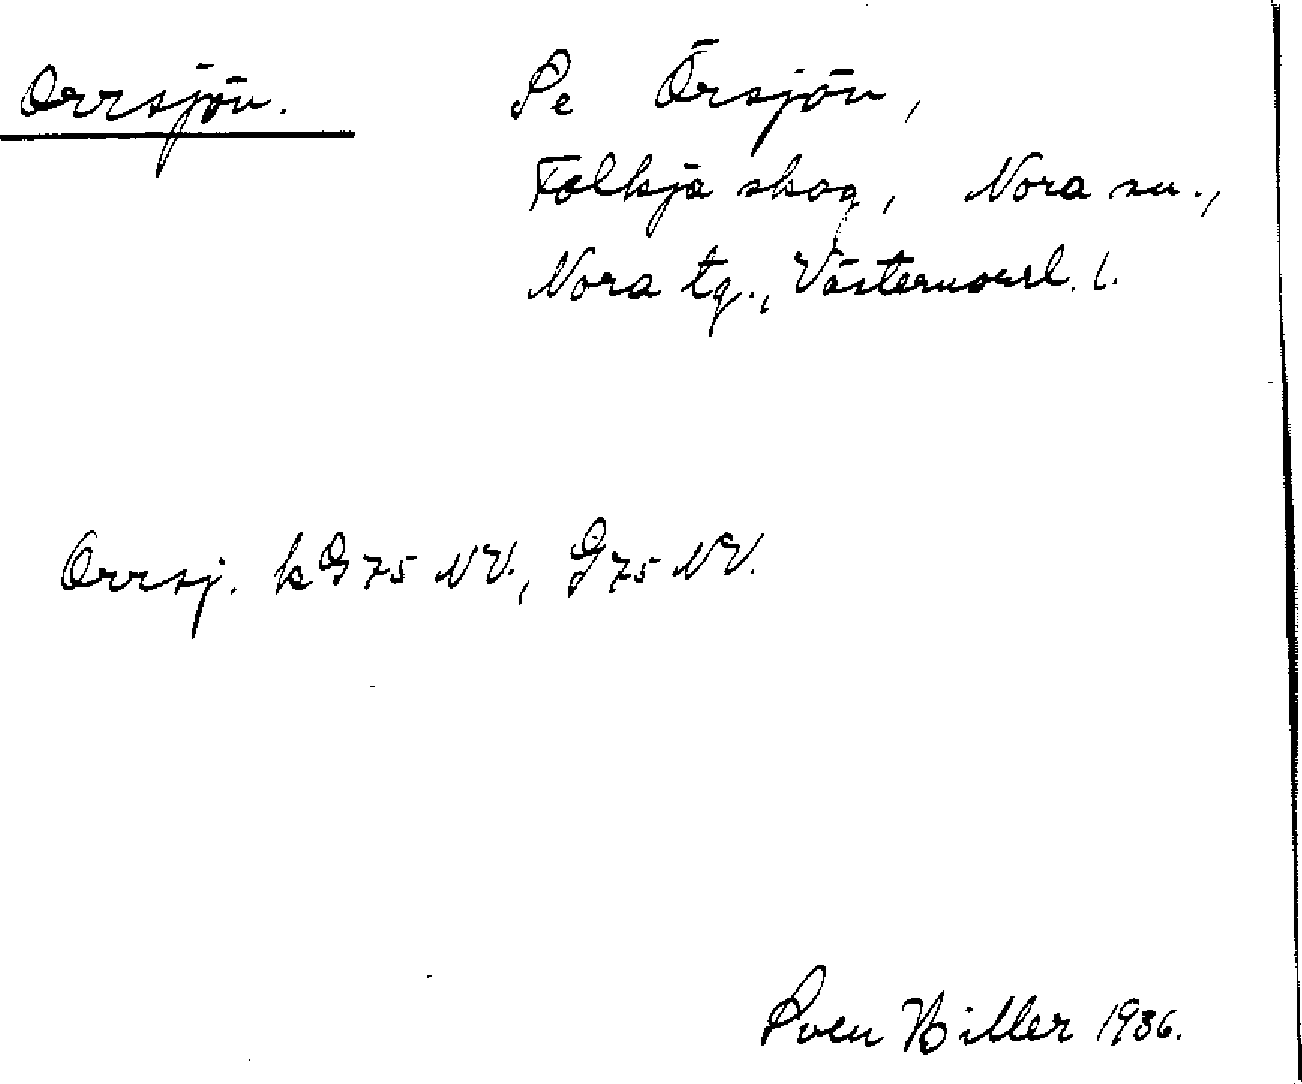 Orrsjön. Se Örsjön,
Fälkja skog, Nora sn.,
Nora tg., Västernorrl. l.
Orrsj. kG 75 NV., G 75 NV.
Sven Hiller 1936.